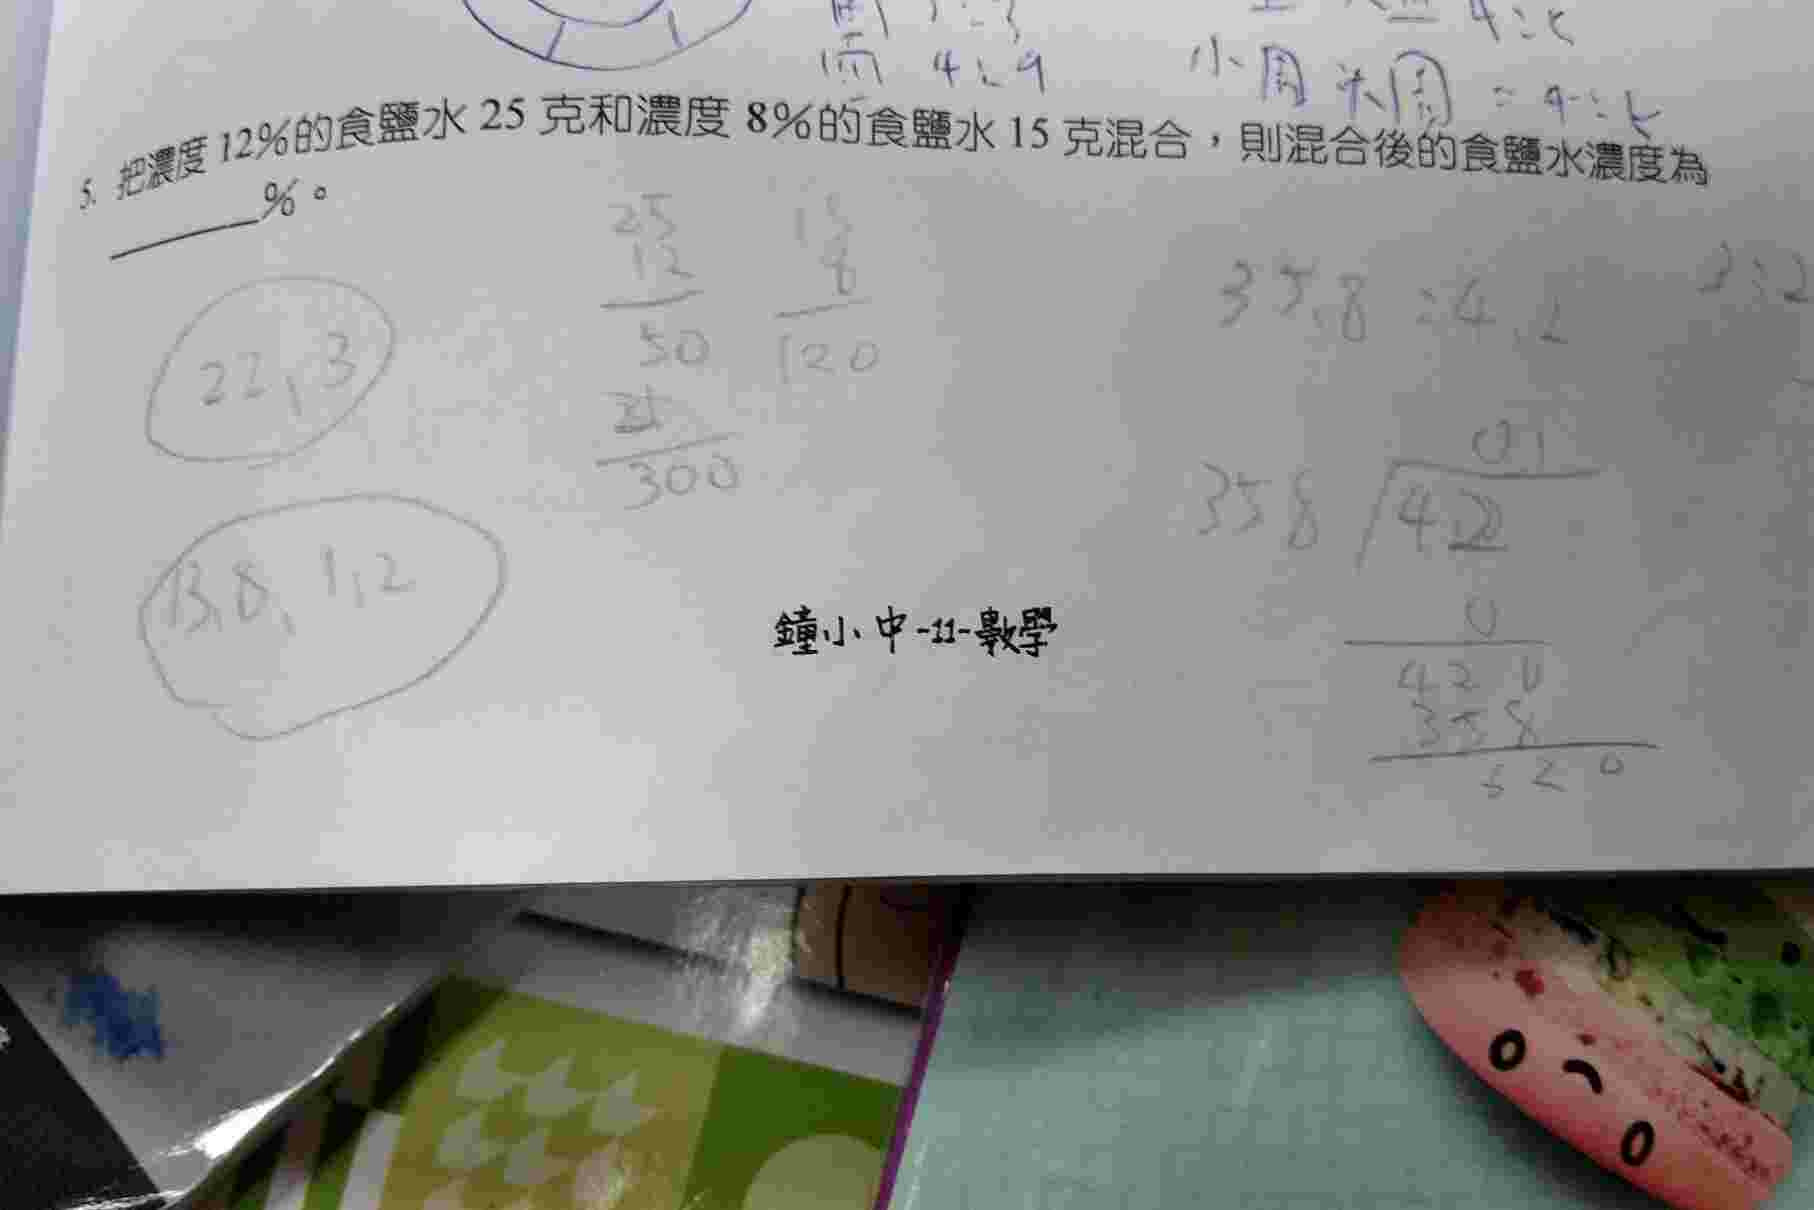 4:9
小圓 大圓 = 4:5
5. 把濃度 12%的食鹽水 25 克和濃度 8%的食鹽水 15 克混合，則混合後的食鹽水濃度為
%。
25
12
50
300
15
8
120
22,3
13.8, 1.2
35.8:4.2
3:2
0.1
358 420
0
420
358
620
鐘小中-11-數學